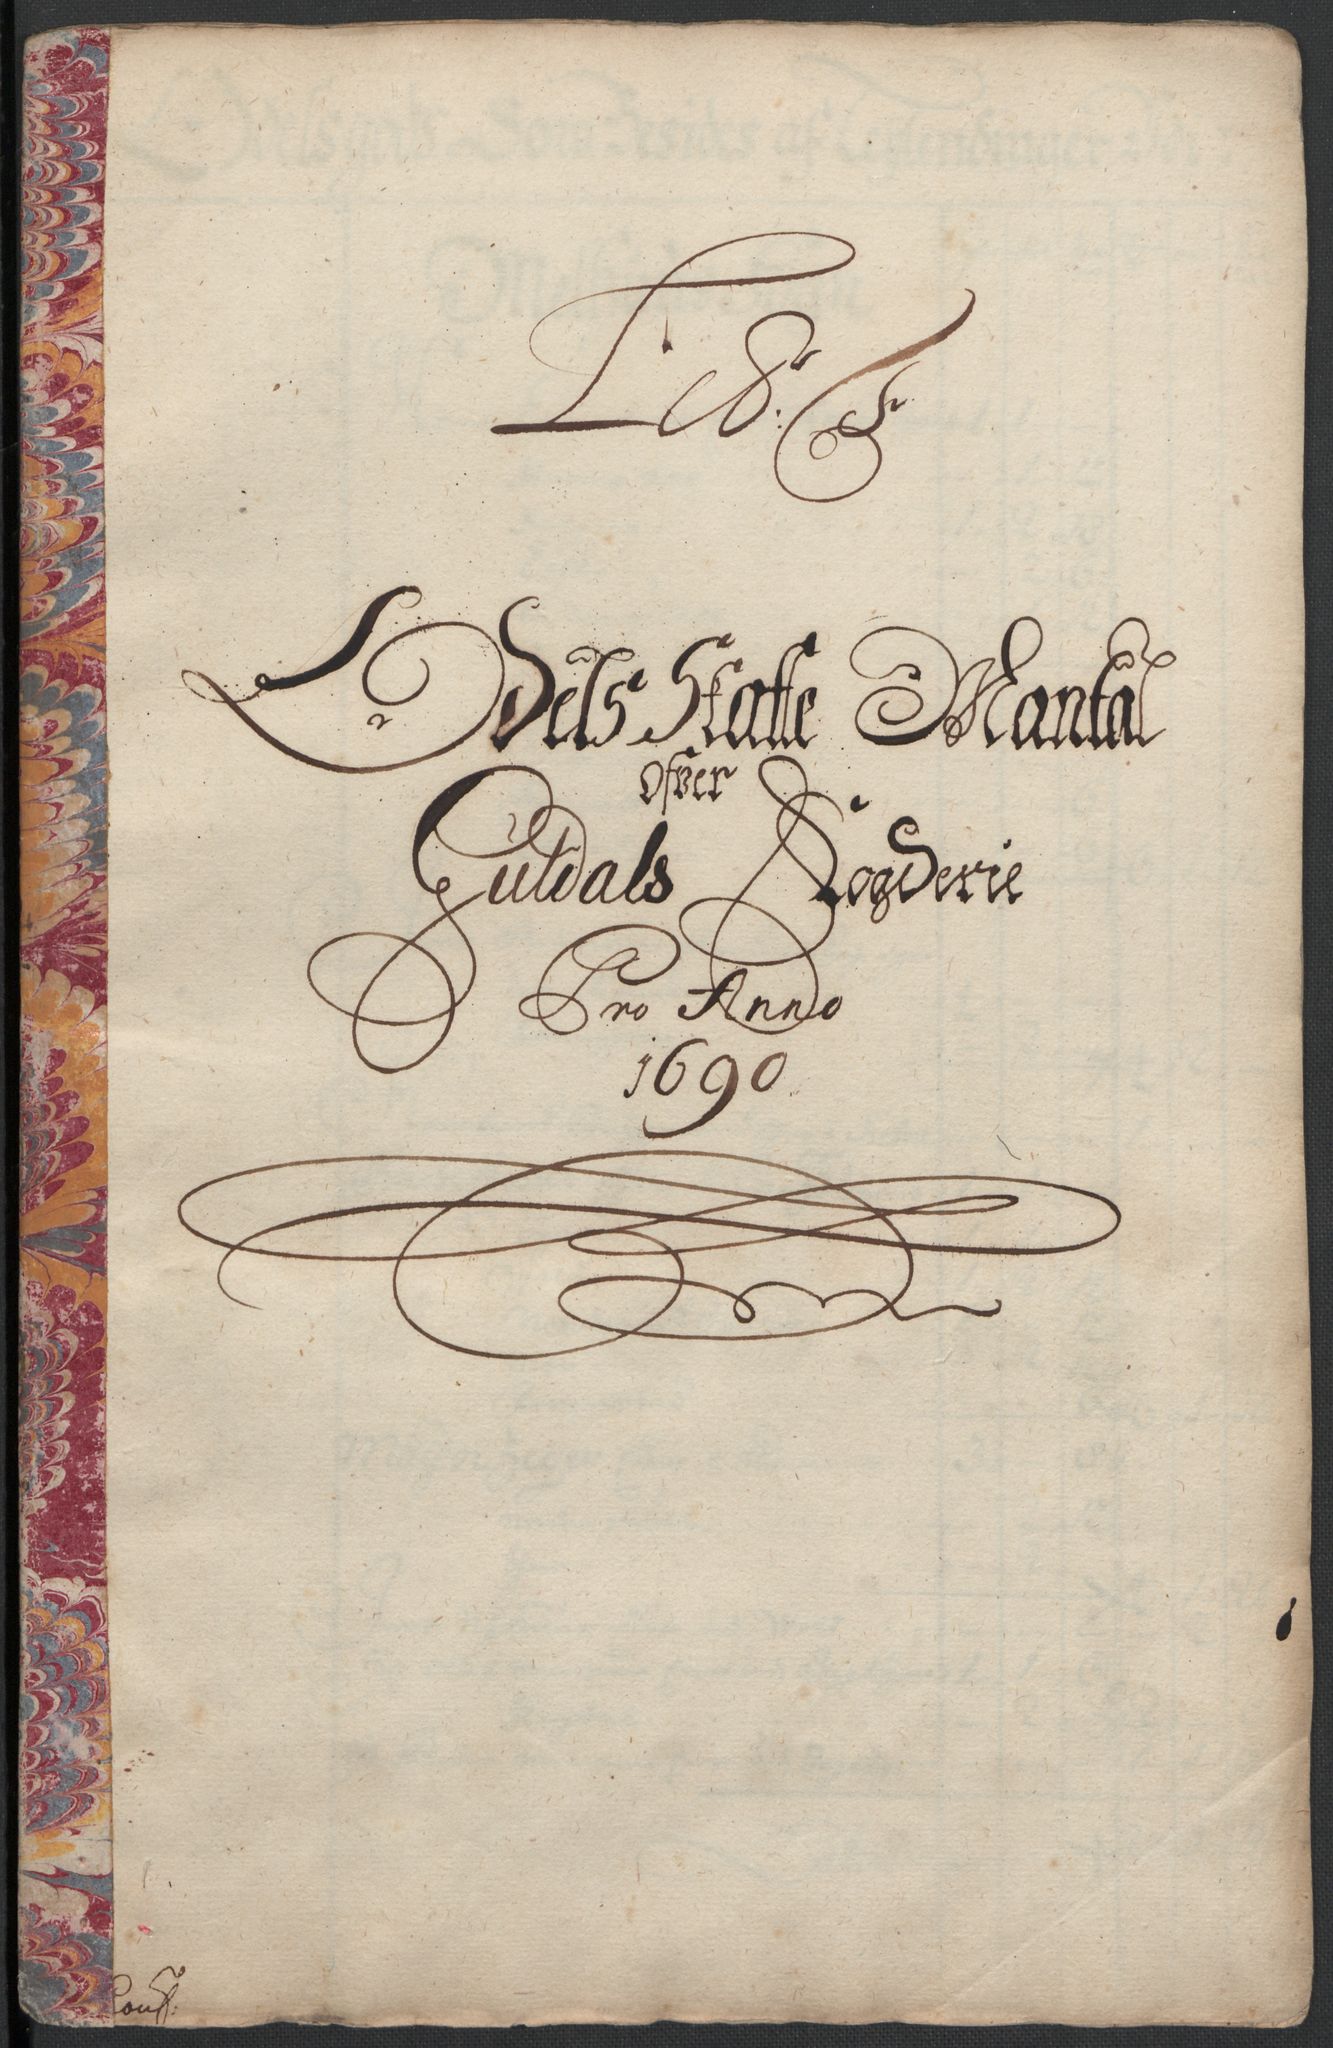 Odels Skatte Mantal
ofver
Guldals Fogderie
Pro Anno
1690